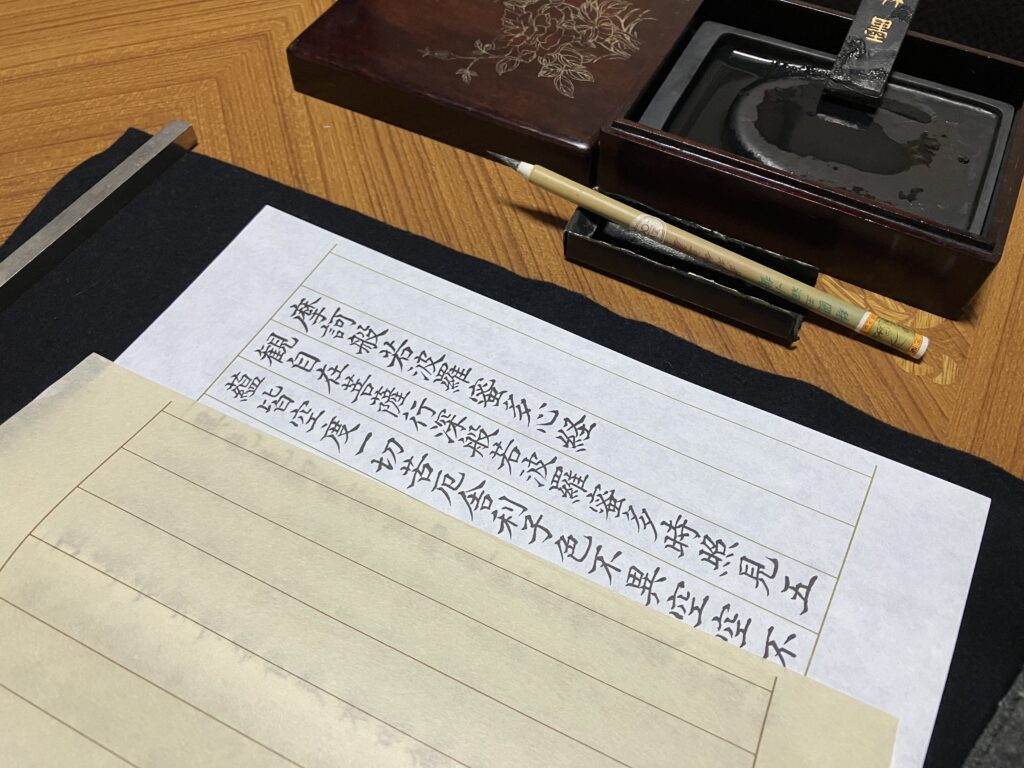 摩訶般若波羅蜜多心経
観自在菩薩行深般若波羅蜜多時照見五
蘊皆空度一切苦厄舎利子色不異空空不